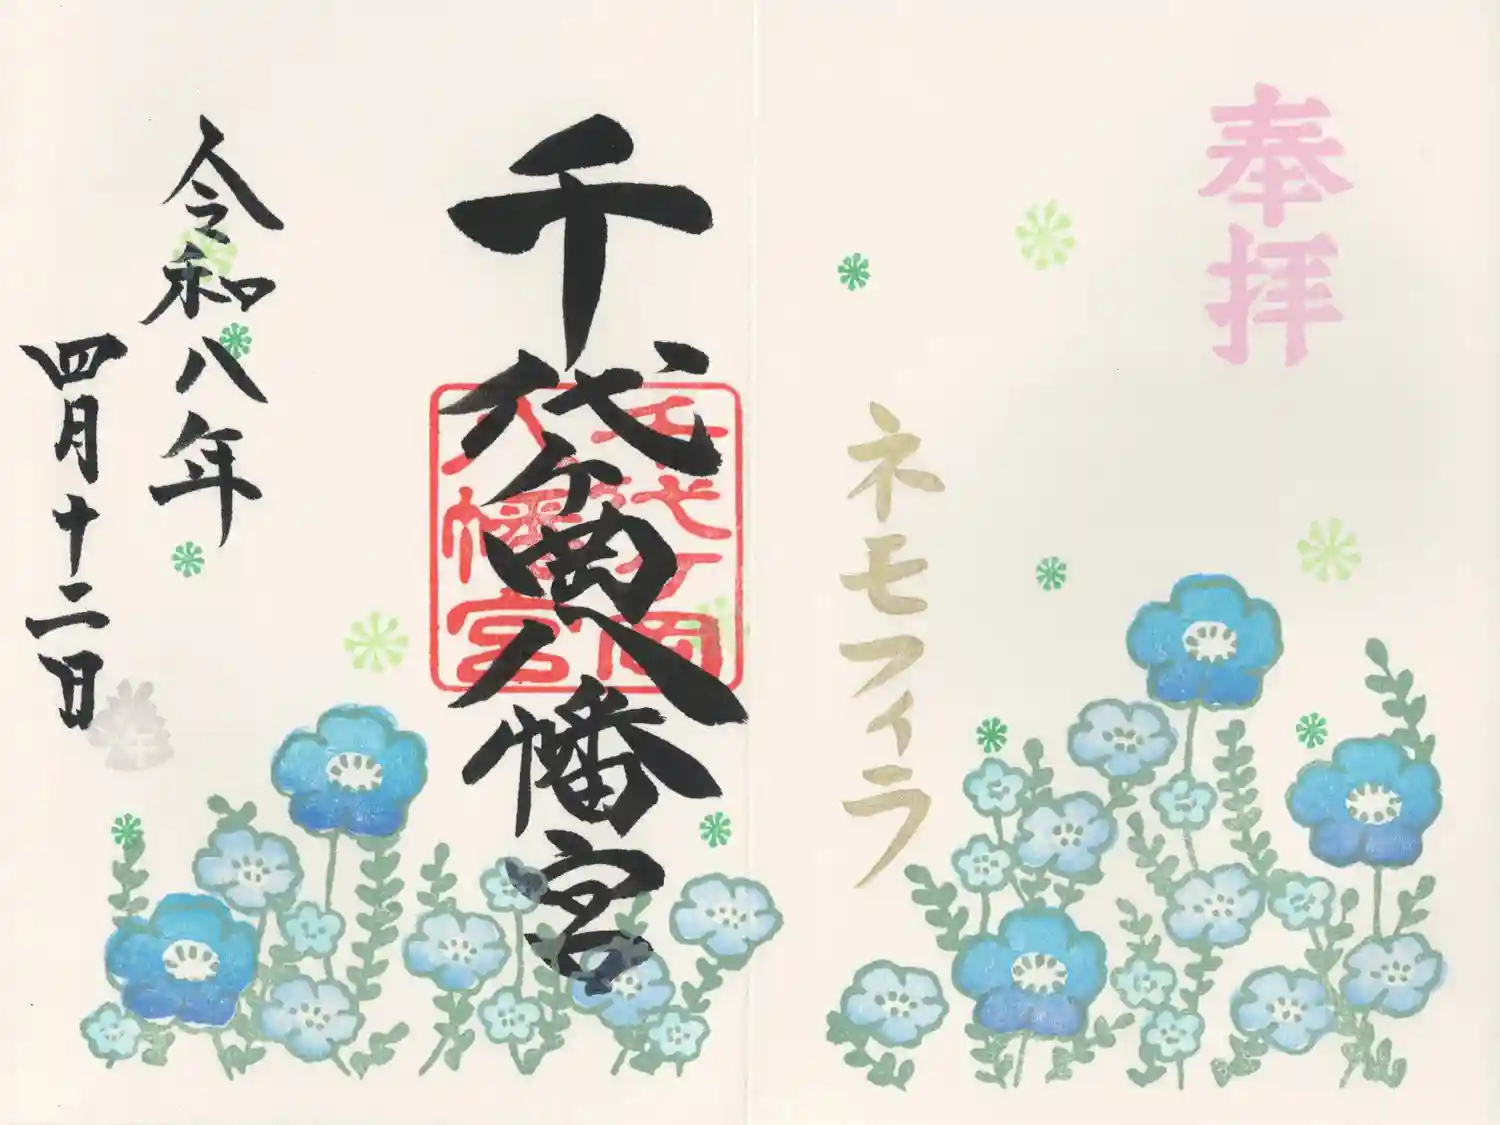 奉拝
ネモフィラ
千代ヶ岡八幡宮
千代ヶ岡
八幡宮
令和八年
四月十二日